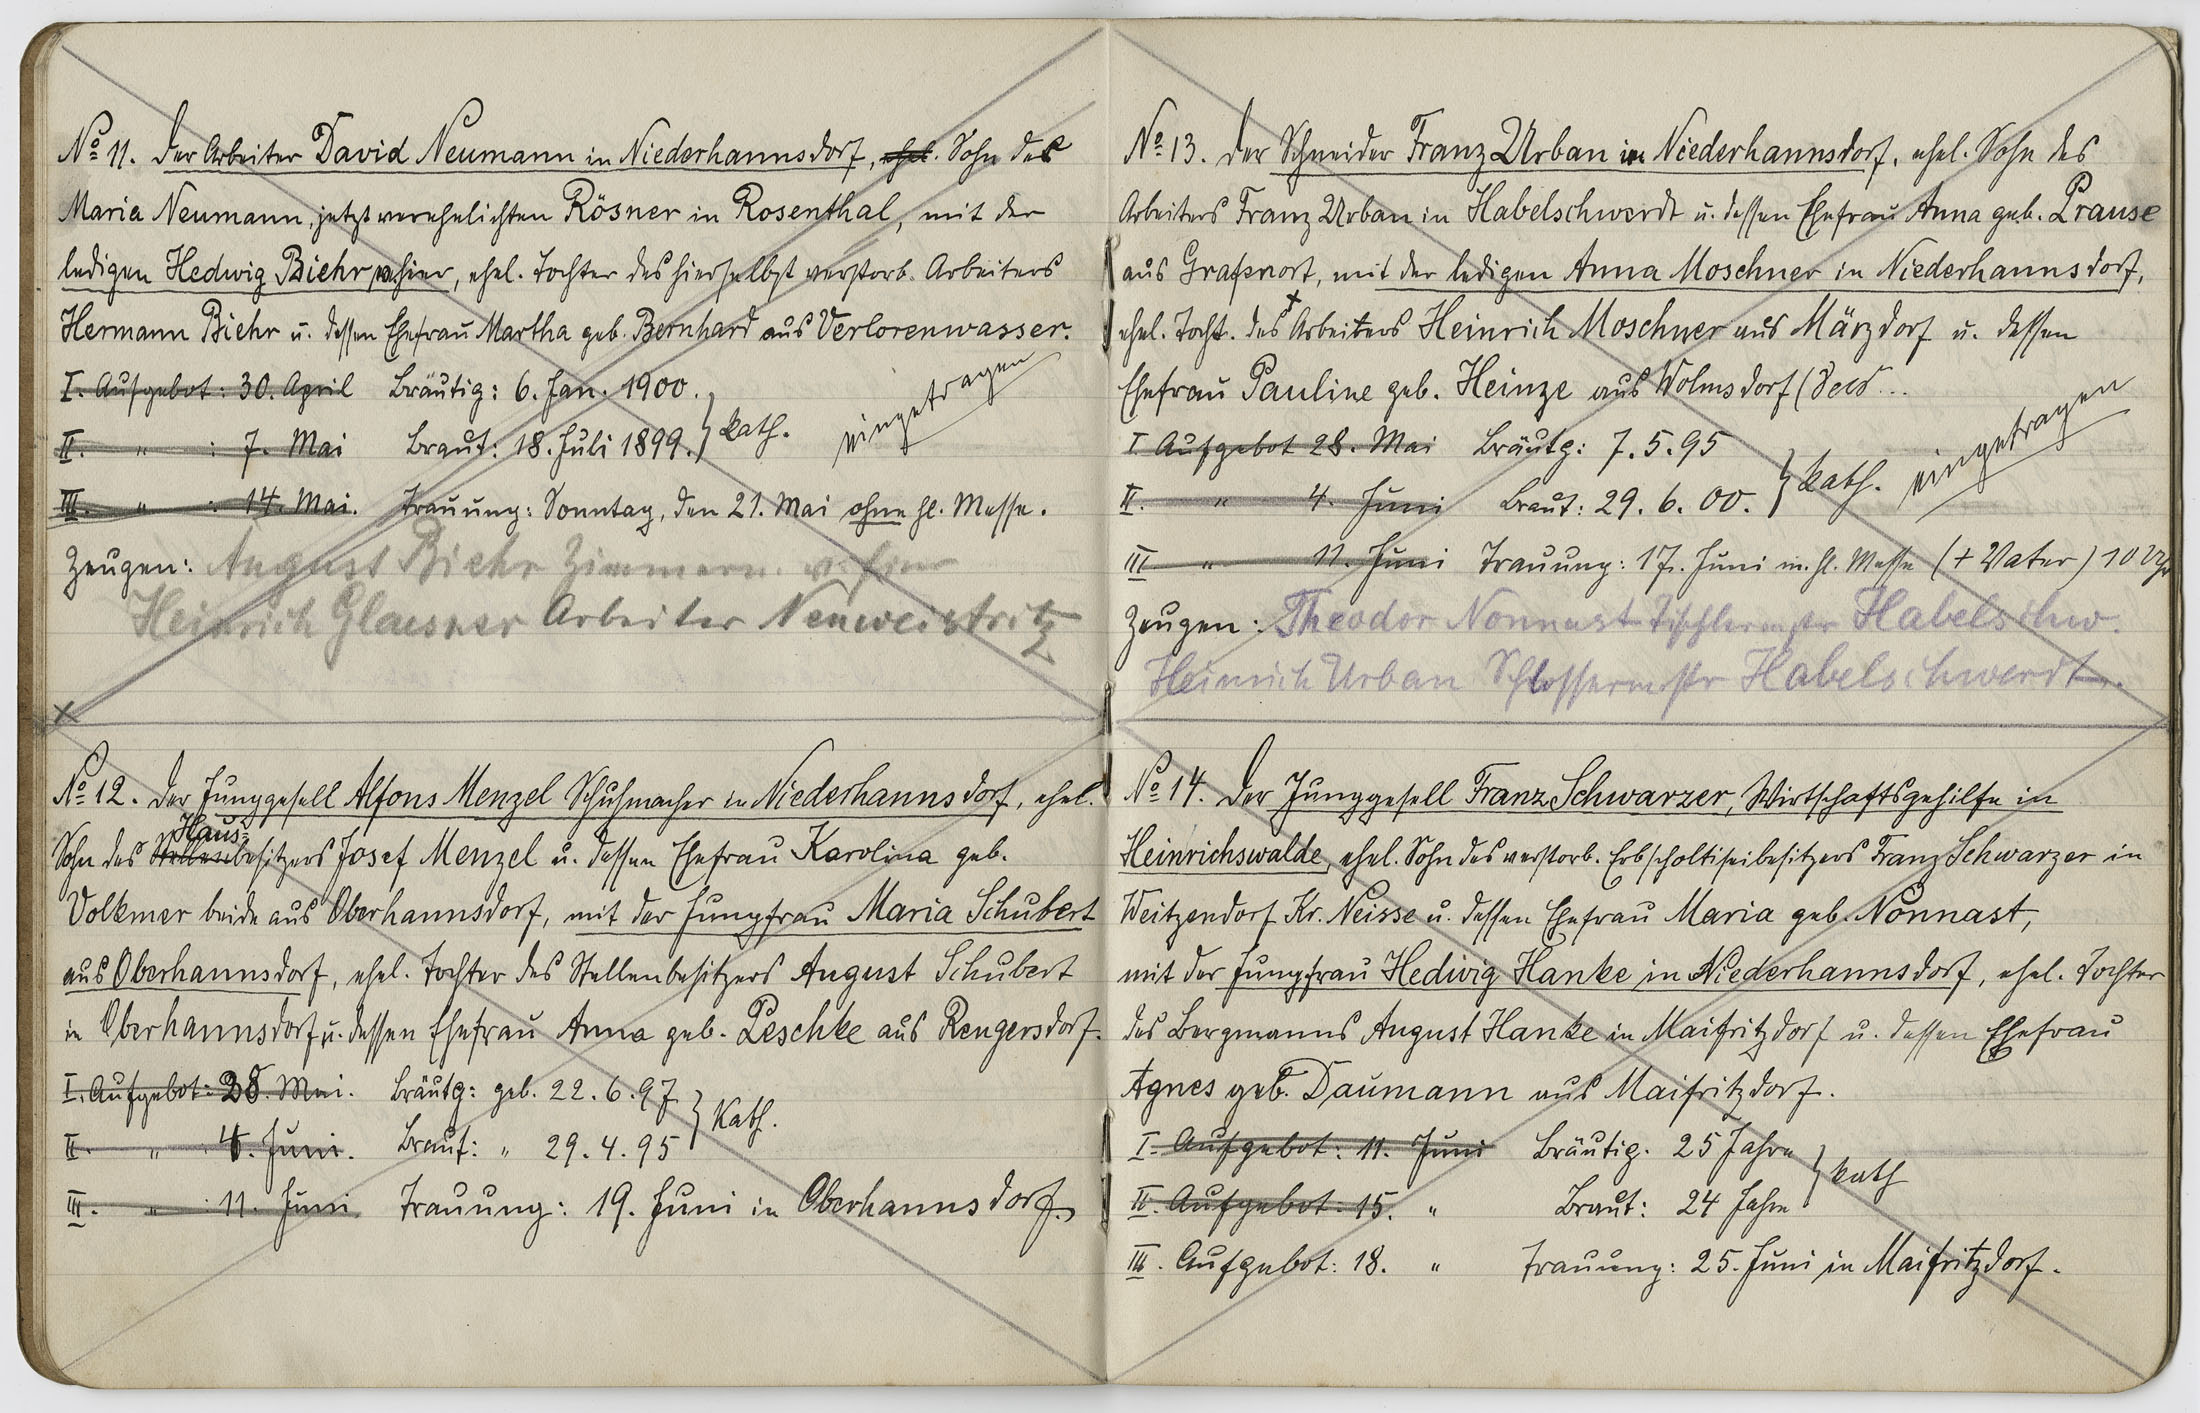 No 11. Der Arbeiter David Neumann in Niederhannsdorf, ehel. Sohn des
Maria Neumann, jetzt verehelichten Rösner in Rosenthal, mit der
ledigen Hedwig Biehr v. hier, ehel. Tochter des hierselbst verstorb. Arbeiters
Hermann Biehr u. dessen Ehefrau Martha geb. Bernhard aus Verlorenwasser.
I. Aufgebot: 30. April Bräutig: 6. Jan. 1900.
II. " : 7. Mai Braut: 18. Juli 1899. } kath. eingetragen
III. " : 14. Mai. Trauung: Sonntag, den 21. Mai ohne hl. Messe.
Zeugen: August Biehr Zimmerm. v. hier
Heinrich Glaesner Arbeiter Neuweistritz
No 12. Der Junggesell Alfons Menzel Schuhmacher in Niederhannsdorf, ehel.
Haus-
Sohn des Stellenbesitzers Josef Menzel u. dessen Ehefrau Karolina geb.
Volkmer beide aus Oberhannsdorf, mit der Jungfrau Maria Schubert
aus Oberhannsdorf, ehel. Tochter des Stellenbesitzers August Schubert
in Oberhannsdorf u. dessen Ehefrau Anna geb. Peschke aus Rengersdorf.
I. Aufgebot: 28. Mai. Bräutg: geb. 22.6.97
II. " : 4. Juni. Braut: " 29.4.95 } Kath.
III. " : 11. Juni Trauung: 19. Juni in Oberhannsdorf.
No 13. Der Schneider Franz Urban in Niederhannsdorf, ehel. Sohn des
Arbeiters Franz Urban in Habelschwerdt u. dessen Ehefrau Anna geb. Prause
aus Grafenort, mit der ledigen Anna Moschner in Niederhannsdorf,
ehel. Tocht. des + Arbeiters Heinrich Moschner aus Märzdorf u. dessen
Ehefrau Pauline geb. Heinze aus Wolmsdorf
I Aufgebot 28. Mai Bräutg: 7.5.95
II. " 4. Juni Braut: 29.6.00. } kath. eingetragen
III " 11. Juni Trauung: 17. Juni m. hl. Messe (+ Vater) 10 Uhr
Zeugen: Theodor Nonnast Tischlermstr Habelschw.
Heinrich Urban Schlossermstr Habelschwerdt.
No 14. Der Junggesell Franz Schwarzer, Wirtschaftsgehilfe in
Heinrichswalde, ehel. Sohn des verstorb. Erbscholtiseibesitzers Franz Schwarzer in
Weitzendorf Kr. Neisse u. dessen Ehefrau Maria geb. Nonnast,
mit der Jungfrau Hedwig Hanke in Niederhannsdorf, ehel. Tochter
des Bergmanns August Hanke in Maifritzdorf u. dessen Ehefrau
Agnes geb. Daumann aus Maifritzdorf.
I. Aufgebot: 11. Juni Bräutig. 25 Jahre
II. Aufgebot: 15. " Braut: 24 Jahre } kath
III. Aufgebot: 18. " Trauung: 25. Juni in Maifritzdorf.